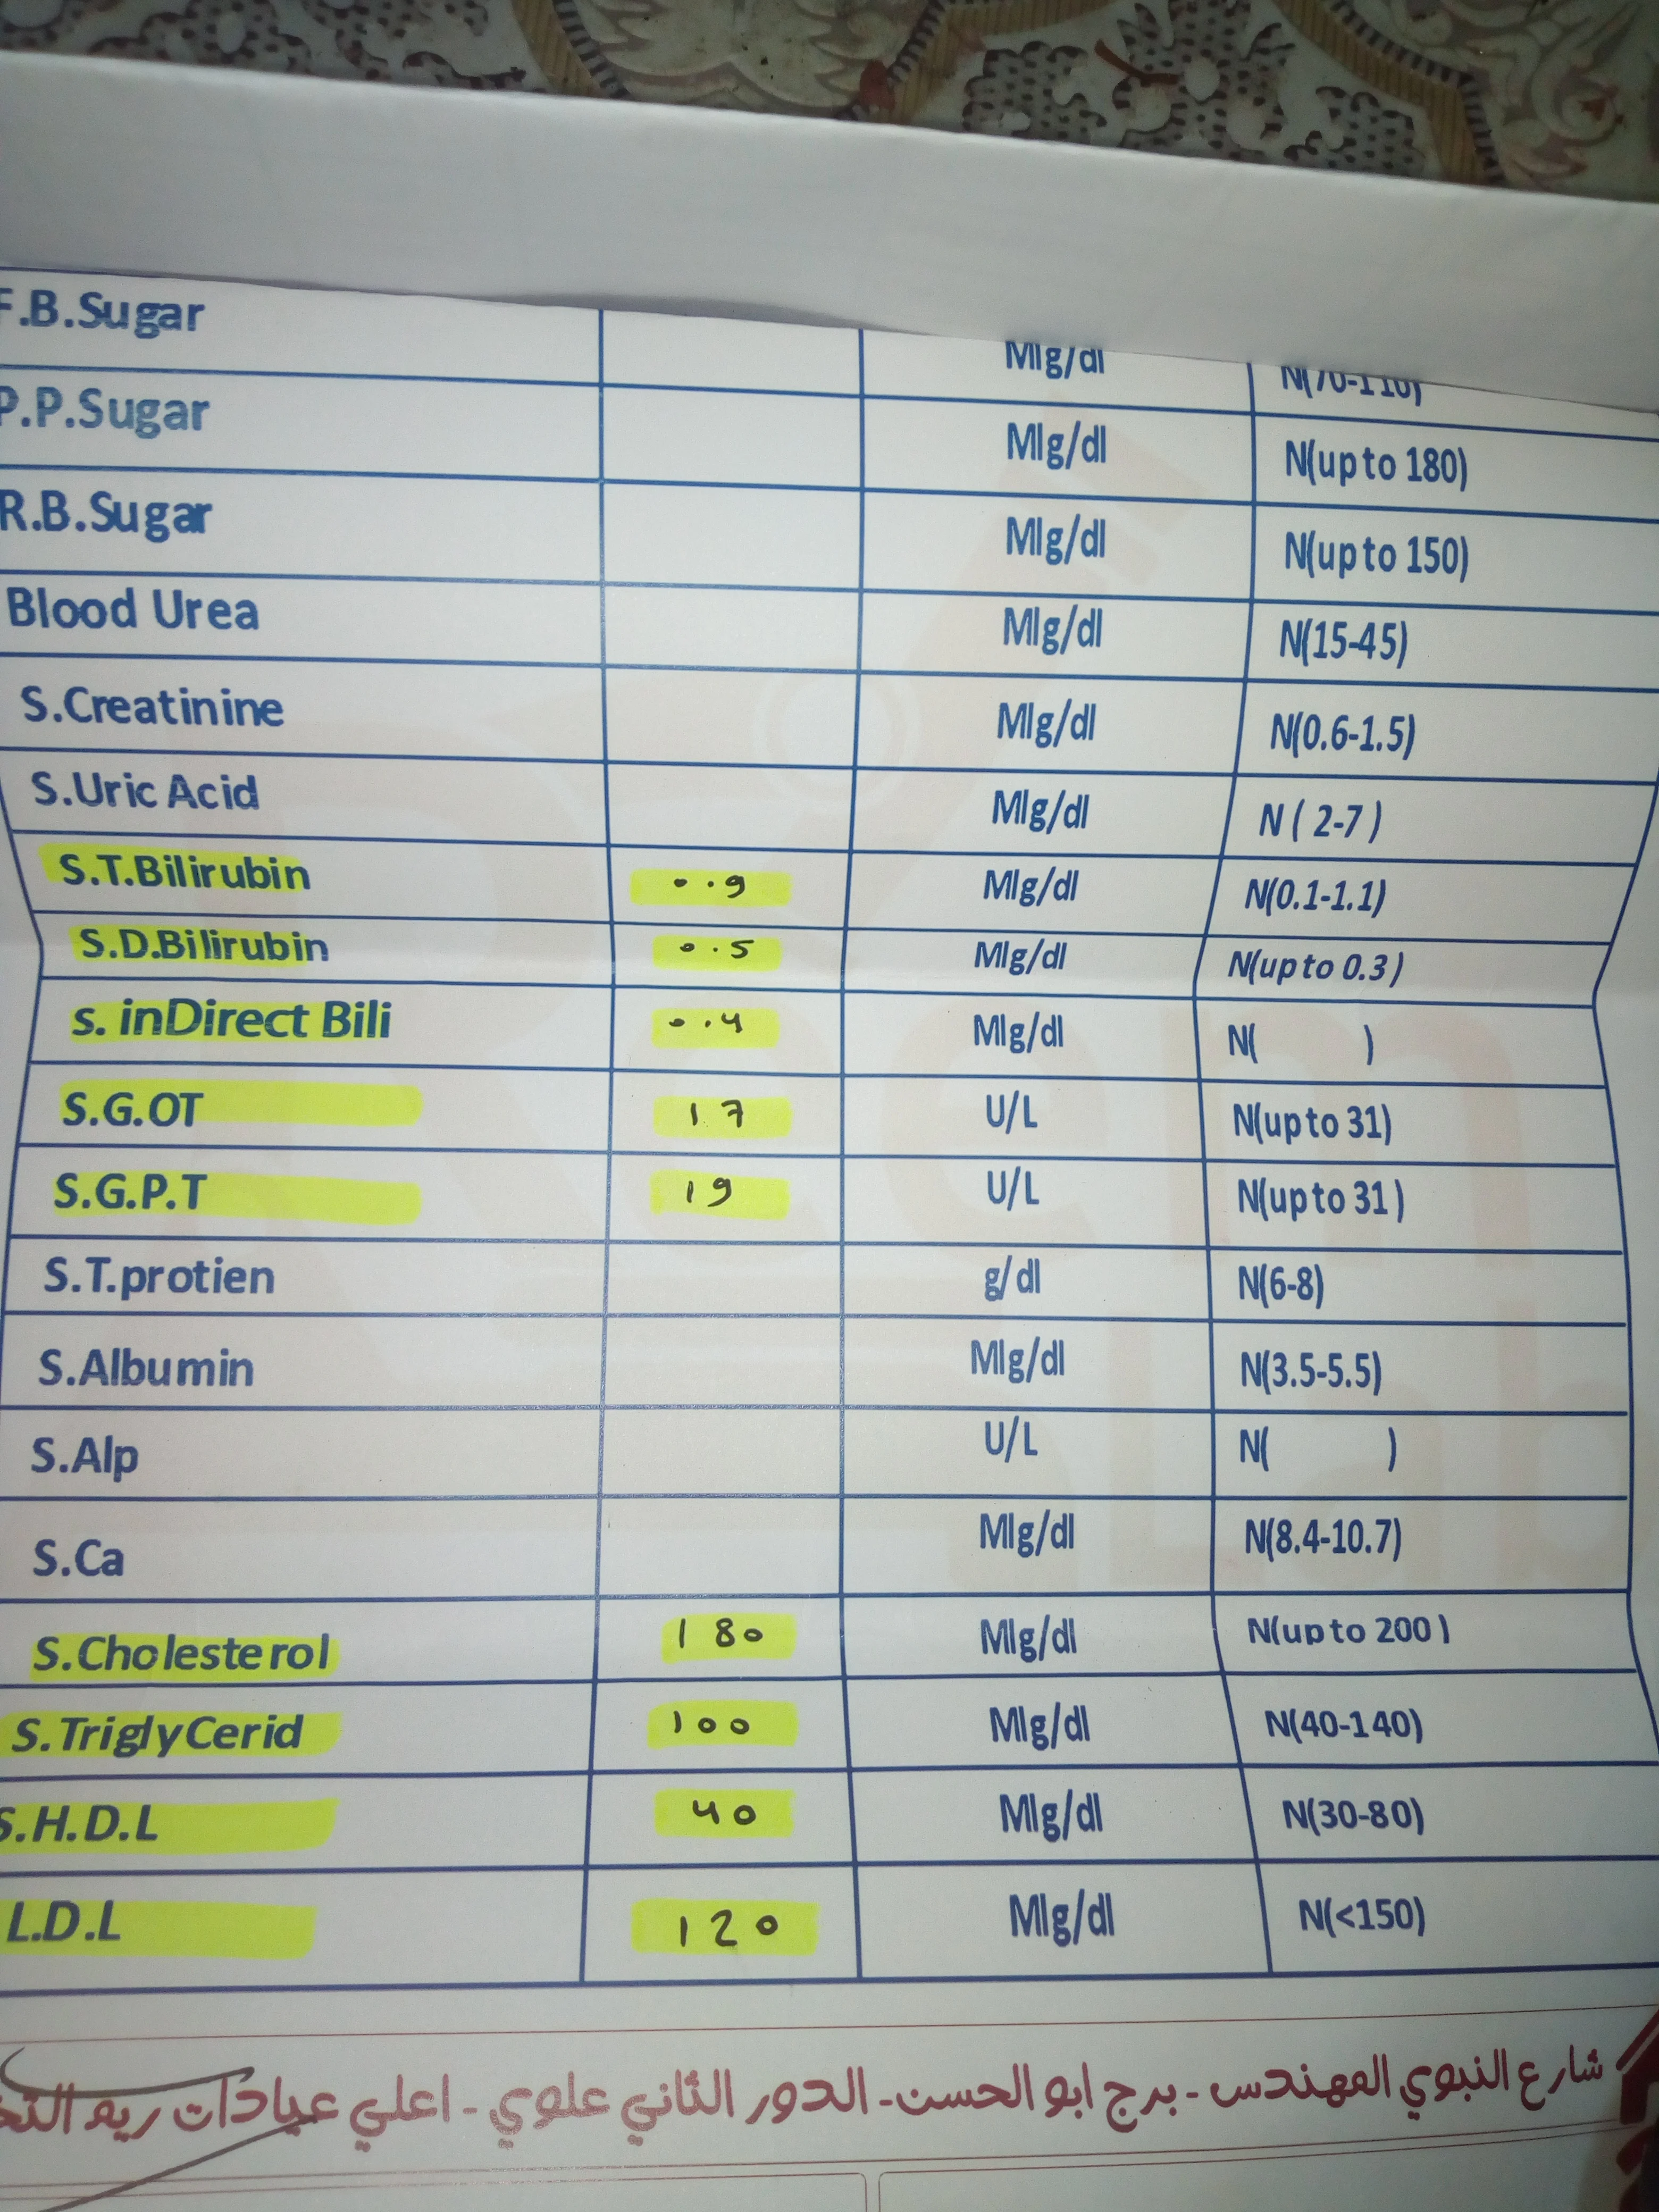 F.B.Sugar Mlg/dl N(70-110)
P.P.Sugar Mlg/dl N(up to 180)
R.B.Sugar Mlg/dl N(up to 150)
Blood Urea Mlg/dl N(15-45)
S.Creatinine Mlg/dl N(0.6-1.5)
S.Uric Acid Mlg/dl N ( 2-7 )
S.T.Bilirubin 0.9 Mlg/dl N(0.1-1.1)
S.D.Bilirubin 0.5 Mlg/dl N(up to 0.3 )
s. inDirect Bili 0.4 Mlg/dl N( )
S.G.OT 17 U/L N(up to 31)
S.G.P.T 19 U/L N(up to 31 )
S.T.protien g/dl N(6-8)
S.Albumin Mlg/dl N(3.5-5.5)
S.Alp U/L N( )
S.Ca Mlg/dl N(8.4-10.7)
S.Cholesterol 180 Mlg/dl N(up to 200 )
S.TriglyCerid 100 Mlg/dl N(40-140)
S.H.D.L 40 Mlg/dl N(30-80)
L.D.L 120 Mlg/dl N(<150)
شارع النبوي المهندس - برج ابو الحسن - الدور الثاني علوي - اعلي عيادات ريم